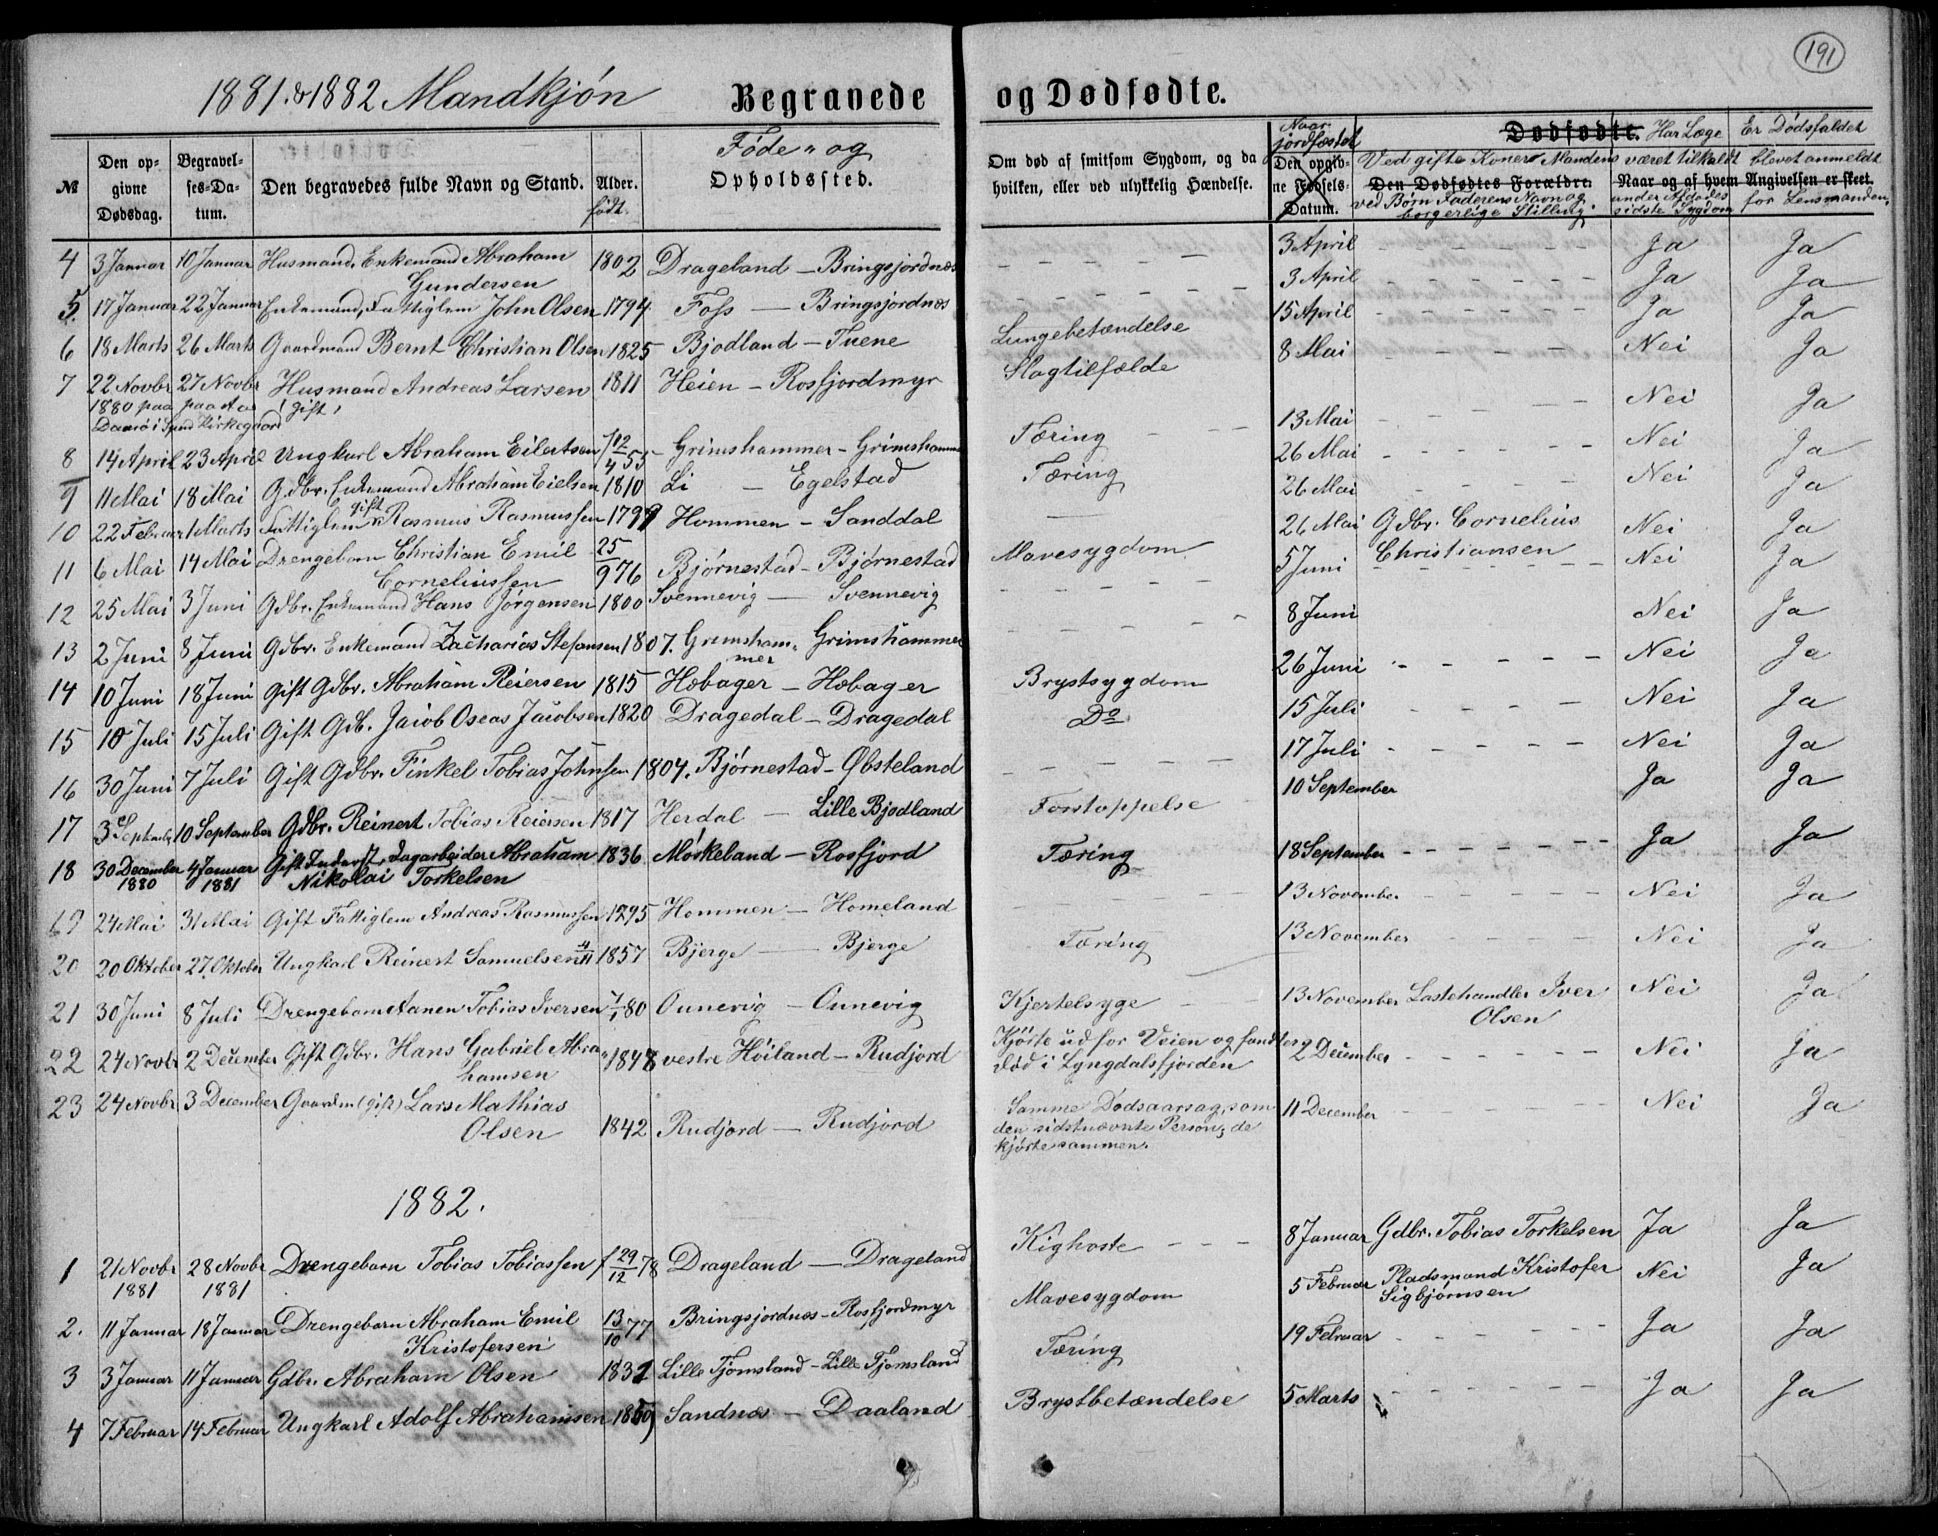 191
1881 & 1882 Mandkjøn Begravede og Dødfødte.
№ Den opgivne Dødsdag. Begravelses-Datum. Den begravedes fulde Navn og Stand. Alder. født. Føde- og Opholdssted. Om død af smitsom Sygdom, og da hvilken, eller ved ulykkelig Hændelse. Naar jordfæstet Den opgivne Fødsels-Datum. Dødfødte. Ved gifte Koner Mandens Den Dødfødtes Forældre. ved Børn Faderens Navn og borgerlige Stilling. Har Læge været tilkaldt Naar og af hvem under Afdødes sidste Sygdom Er Dødsfaldet blevet anmeldt Angivelsen er skeet. for Lensmanden.
4 3 Januar 10 Januar Husmand, Enkemand Abraham Gundersen 1802 Drageland — Bringsjordnæs 3 April Ja Ja
5. 17 Januar 22 Januar Enkemand, Fattiglem John Olsen 1794 Foss — Bringsjordnæs 3 April Ja Ja
6 18 Marts 26 Marts Gaardmand Bernt Christian Olsen 1825 Bjodland — Tuene Lungebetændelse 15 April Ja Ja
7 22 Novbr 1880 paa 27 Novbr paa Aas Kirkegaard Husmand Andreas Larsen (gift) 1811 Heien — Rosfjordmyr Slagtilfælde 8 Mai Nei Ja
8 14 April 23 April Ungkarl Abraham Eilertsen f 12/4 55 Grimshammer — Grimshammer Tæring 13 Mai Nei Ja
9 11 Mai 18 Mai Gdbr. Enkemand Abraham Eielsen 1810 Li — Egelstad Tæring 26 Mai Nei Ja
10 22 Februar 1 Marts Fattiglem gift Rasmus Rasmussen 1799 Hommen — Sanddal — 26 Mai Nei Ja
11 6 Mai 14 Mai Drengebarn Christian Emil Corneliussen 25/9 76 Bjørnestad — Bjørnestad Mavesygdom 26 Mai Gdbr. Cornelius Christiansen Nei Ja
12 25 Mai 3 Juni Gdbr. Enkemand Hans Jørgensen 1800 Svennevig — Svennevig 5 Juni Nei Ja
13 2 Juni 8 Juni Gdbr. Enkemand Zacharias Stefansen 1807. Grimshammer Grimshammer 8 Juni Nei Ja
14 10 Juni 18 Juni Gift Gdbr. Abraham Reiersen 1815 Hobager — Hobager Brystsygdom 26 Juni Nei Ja
15 10 Juli 15 Juli Gift Gdb. Jacob Oseas Jacobsen 1820 Dragedal — Dragedal Do 15 Juli Nei Ja
16 30 Juni 7 Juli Gift Gdbr. Finkel Tobias Johnsen 1804. Bjørnestad — Øbsteland 17 Juli Nei Ja
17 3 Septembr 10 September Gdbr. Reinert Tobias Reiersen 1817 Herdal — Lille Bjodland Forstoppelse 10 September Ja Ja
18 30 December 1880 4 Januar 1881 Gift Inderst, Dagarbeider Abraham Nikolai Torkelsen 1836 Moskeland — Rosfjord Tæring 18 September Ja Ja
19 24 Mai 31 Mai Gift Fattiglem Andreas Rasmussen 1795 Hommen — Homeland 13 November Nei Ja
20 20 Oktober 27. Oktober Ungkarl Reinert Samuelsen 4/11 1857 Bjerge — Bjerge Tæring 13 November Nei Ja
21 30 Juni 8 Juli Drengebarn Aanen Tobias Iversen 7/1 80 Ounevig — Ounevig Kjertelsyge 13 November Lastehandler Iver Olsen Nei Ja
22 24 Novbr 2 December Gift Gdbr. Hans Gabriel Abrahamsen 1848 vestre Høiland — Rudjord Kjørte udfor Veien og fandtes død i Lyngdalsfjorden 2 December Nei Ja
23 24 Novbr 3 December Gaardm (gift) Lars Mathias Olsen 1842 Rudjord — Rudjord Samme Dødsaarsag, som den sidstnævnte Person, de kjørte sammen. 11 December Nei Ja
1882.
1 21 Novbr 1881 28 Novbr 1881 Drengebarn Tobias Tobiassen f 29/12 78 Drageland — Drageland Kighoste 8 Januar Gdbr. Tobias Torkelsen Ja Ja
2. 11 Januar 18 Januar Drengebarn Abraham Emil Kristofersen 13/10 77 Bringsjordnæs — Rosfjordmyr Mavesygdom 5 Februar Pladsmand Kristofer Sigbjørnsen Nei Ja
3 3 Januar 11 Januar Gdbr. Abraham Olsen 1831 Lille Tjomsland — Lille Tjomsland Tæring 19 Februar Ja Ja
4 7 Februar 14 Februar Ungkarl Adolf Abrahamsen Sandnæs — Daaland Brystbetændelse 5 Marts Ja Ja